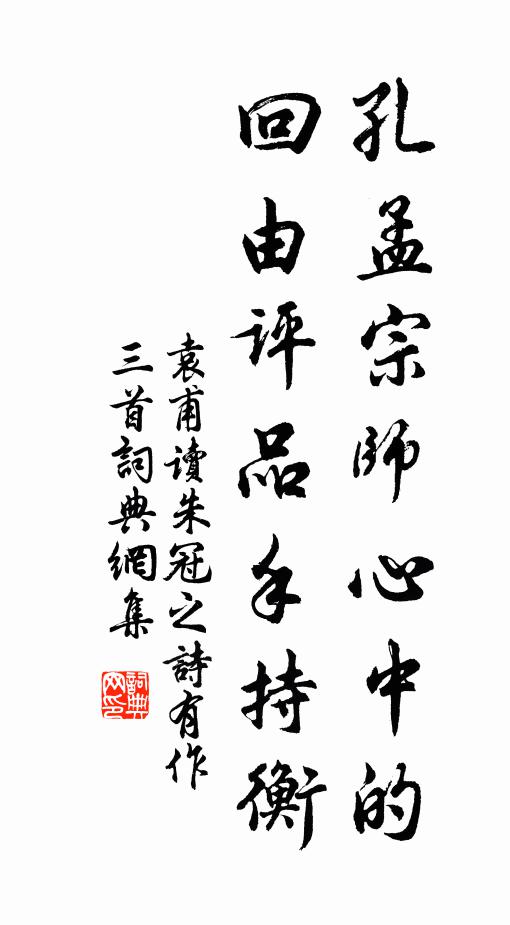 孔孟宗師心中的
回由評品手持衡
袁甫讀朱冠之詩有作
三首詞典網集
詞典网印